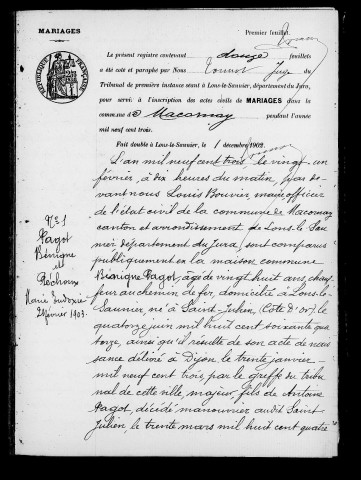 MARIAGES
Premier feuillet.
RÉPUBLIQUE FRANÇAISE
Le présent registre contenant douze feuillets
a été coté et paraphé par Nous Juge au
Tribunal de première instance séant à Lons-le-Saunier, département du Jura,
pour servir à l'inscription des actes civils de MARIAGES dans l'année
commune de Macornay pendant l'année
mil neuf cent trois.
Fait double à Lons-le-Saunier, le 1 décembre 1902.
L'an mil neuf cent trois le vingt-un
février, à dix heures du matin, par de-
vant nous Louis Bouvier, maire officier
de l'état civil de la commune de Macornay
canton et arrondissement de Lons-le-Sau
nier département du Jura, sont comparus
publiquement en la maison commune
Bénigne Pagot, âgé de vingt huit ans, chauf
feur au chemin de fer, domicilié à Lons-le-
Saunier né à Saint-Julien, (Côte d'or), le
quatorze juin mil huit cent soixante qua
torze, ainsi qu'il résulte de son acte de nais
sance délivré à Dijon, le trente janvier
mil neuf cent trois, par le greffe du tribu
nal de cette ville, majeur, fils de Antoine
Pagot, décédé manouvrier audit Saint
Julien, le trente mars mil huit cent quatre
No 1
Pagot
Bénigne
et
Marie
21 février 1903.